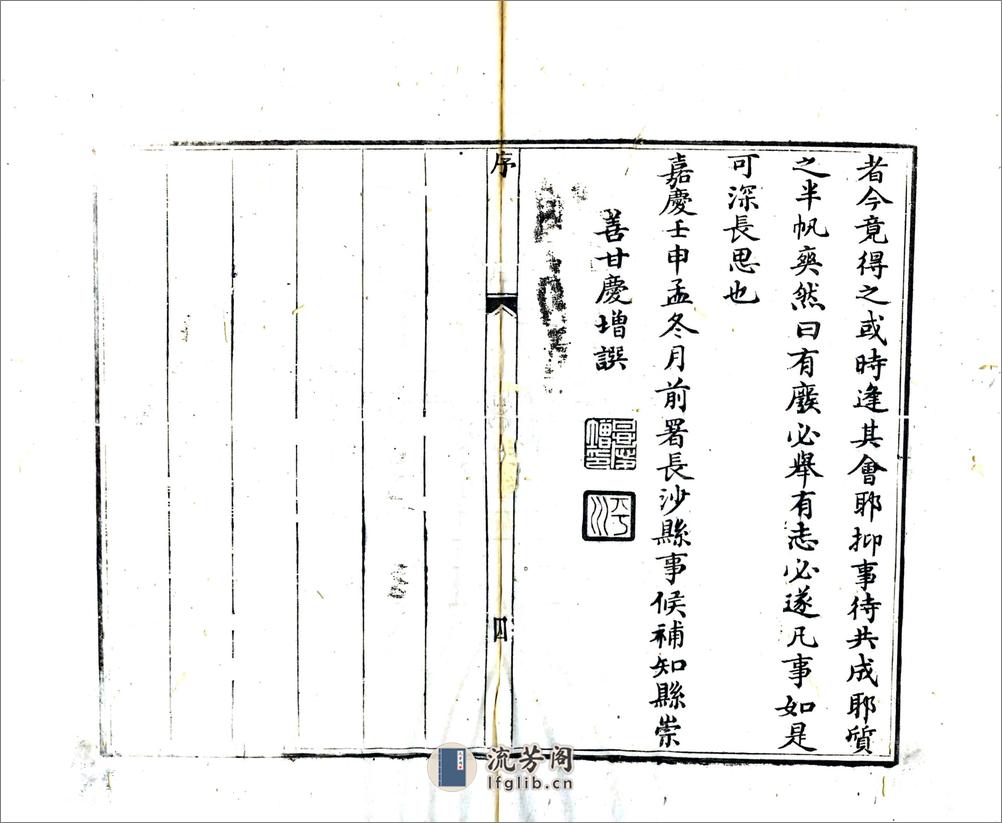 者今竟得之或時逢其會耶抑事待共成耶質
之半帆奭然曰有廢必舉有志必遂凡事如是
可深長思也
嘉慶壬申孟冬月前署長沙縣事候補知縣崇
善甘慶增譔
序
四
流芳阁
lfglib.cn